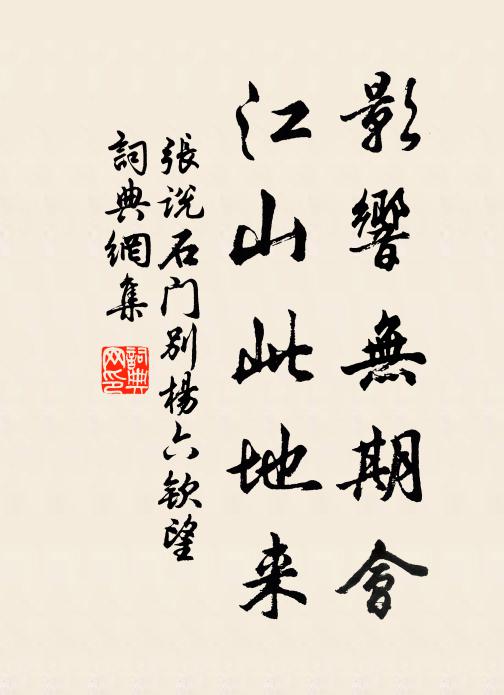 影響無期會
江山此地来
張说石门别楊六钦望
詞典網集
詞典
网印